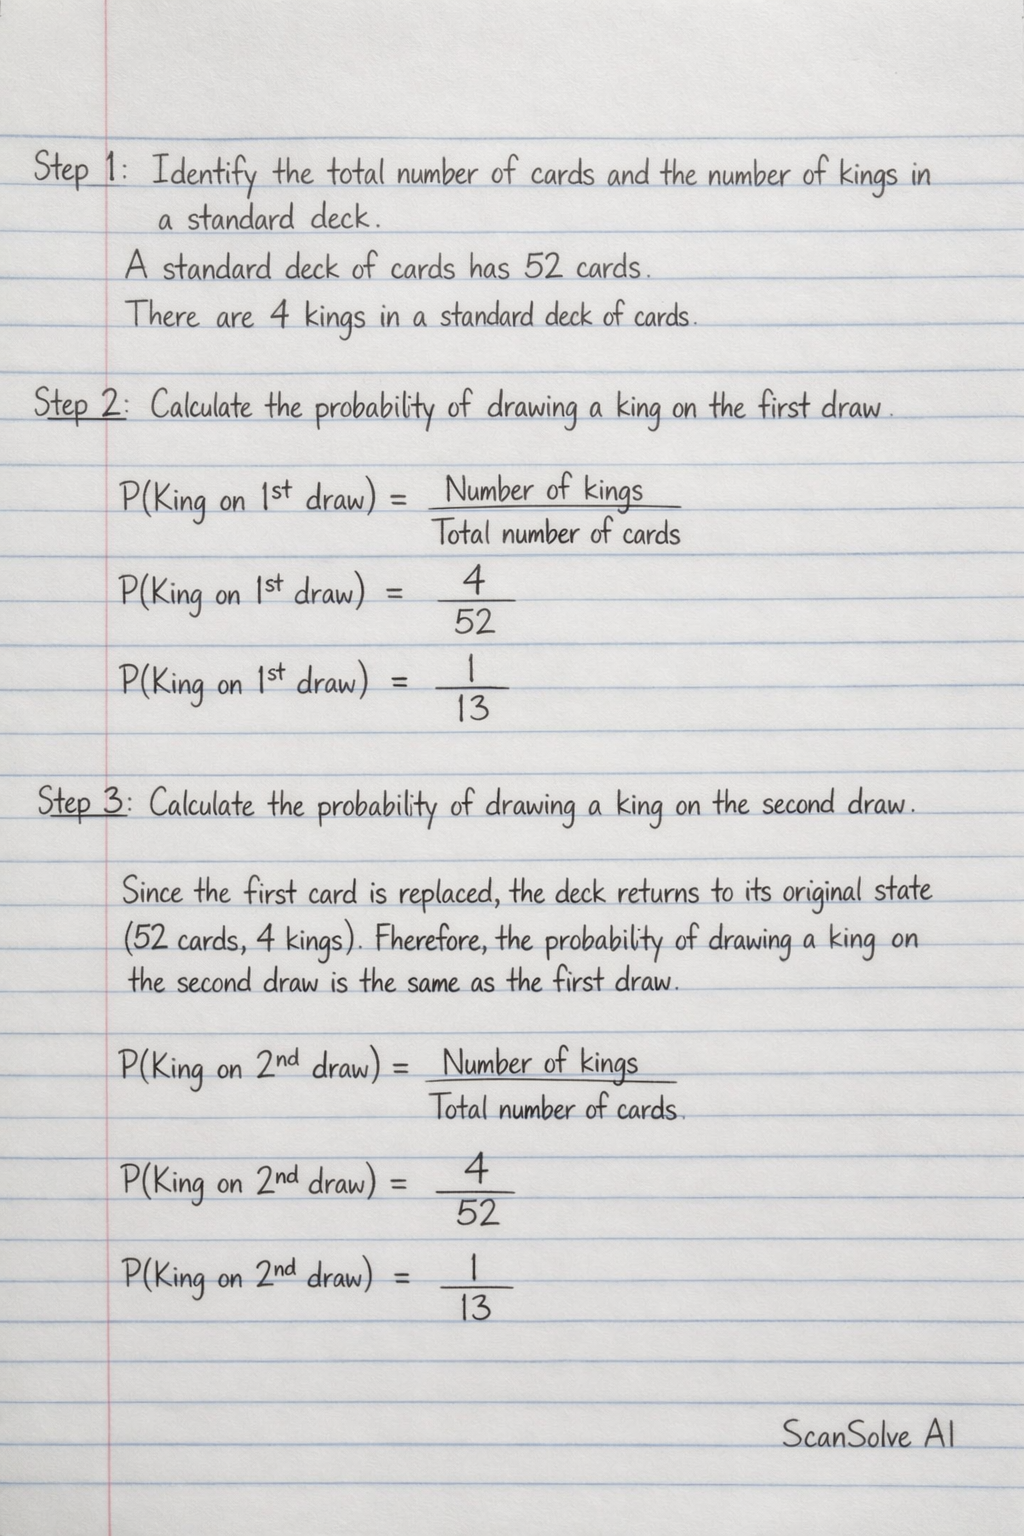 Step 1: Identify the total number of cards and the number of kings in
a standard deck.
A standard deck of cards has 52 cards.
There are 4 kings in a standard deck of cards.
Step 2: Calculate the probability of drawing a king on the first draw.
P(King on 1st draw) = Number of kings
Total number of cards
P(King on 1st draw) = 4
52
P(King on 1st draw) = 1
13
Step 3: Calculate the probability of drawing a king on the second draw.
Since the first card is replaced, the deck returns to its original state
(52 cards, 4 kings). Fherefore, the probability of drawing a king on
the second draw is the same as the first draw.
P(King on 2nd draw) = Number of kings
Total number of cards.
P(King on 2nd draw) = 4
52
P(King on 2nd draw) = 1
13
ScanSolve AI